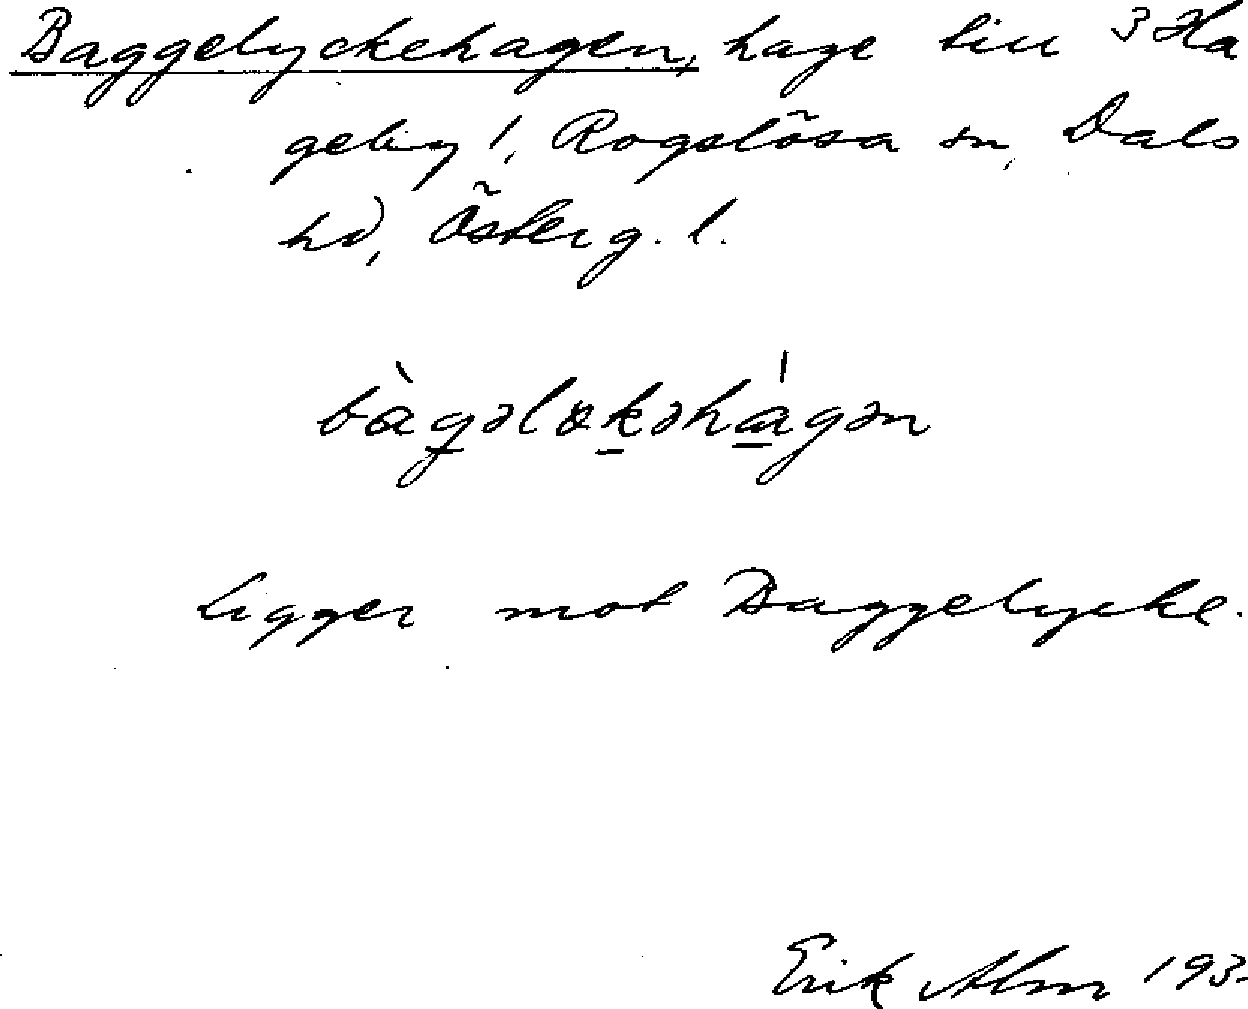 Baggelyckehagen, hage till 3 Ha
geby 1, Rogslösa sn, Dals
hd, Österg. l.
bàgəlɵkəhágən
Ligger mot Baggelycke.
Erik Alm 193